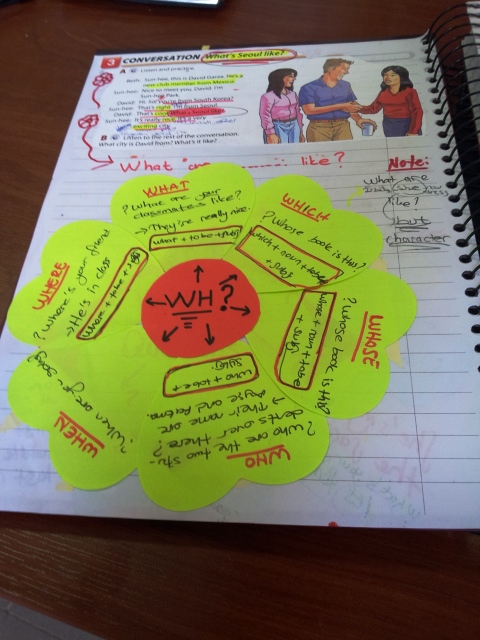 3 CONVERSATION What's Seoul like?
A Listen and practice.
Beth: Sun-hee, this is David Garza. He's a
new club member from Mexico.
Sun-hee: Nice to meet you, David. I'm
Sun-hee Park.
David: Hi. So, you're from South Korea?
Sun-hee: That's right. I'm from Seoul.
David: That's cool. What's Seoul like?
Sun-hee: It's really nice. It's a very
exciting city.
B Listen to the rest of the conversation.
What city is David from? What's it like?
What are like?
Note:
what are
like?
but
character
WHAT
? What are your
classmates like?
→ They're really nice.
what + to be + subj
WHICH
? Whose book is this?
which + noun + to be
+ subj
WHOSE
? Whose book is this?
whose + noun + to be
+ subj
WHO
? Who are the two stu-
dents over there?
→ Their name are
Ayşe and Fatma.
who + to be +
subj.
WHEN
? When are you going
WHERE
? Where is your friend
→ He's in class
Where + to be + subj
WH?